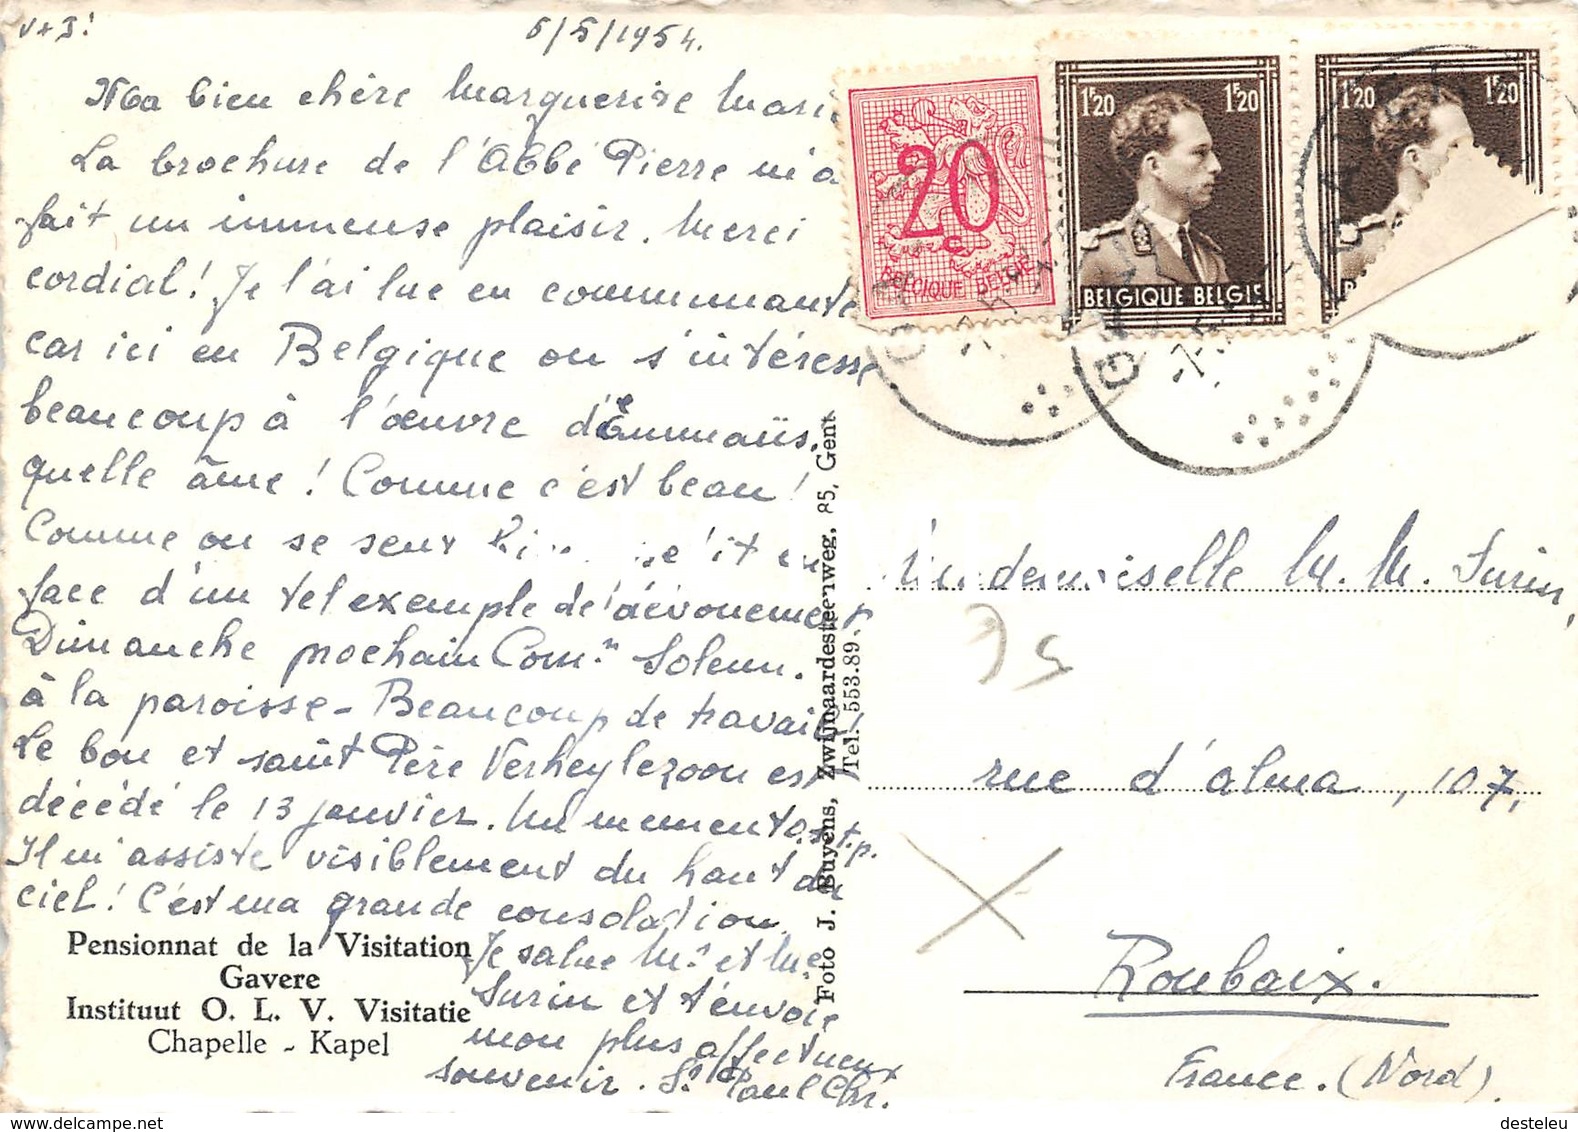 V+J!
5/5/1954.
Ma bien chère Marguerite Marie
La brochure de l'Abbé Pierre m'a
fait un immense plaisir. Merci
cordial! Je l'ai lue en communauté
car ici en Belgique on s'intéresse
beaucoup à l'œuvre d'Emmaüs.
quelle âme! Comme c'est beau!
Comme on se sent en
face d'un tel exemple de dévouement
Dimanche prochain Com.n Solenn.
à la paroisse - Beaucoup de travail!
Le bon et saint Père Verheylezoon est
décédé le 13 janvier. Un memento s.t.p.
Il m'assiste visiblement du haut du
ciel! C'est ma grande consolation.
Je salue Mr et Me
Surin et t'envoie
mon plus affectueux
souvenir. Sr Paul Chr.
Pensionnat de la Visitation
Gavere
Instituut O. L. V. Visitatie
Chapelle - Kapel
Foto J. Buyens, Zwijnaardesteenweg, 85, Gent
Tel. 553.89.
20
BELGIQUE BELGIE
1F20 1F20
BELGIQUE BELGIE
1F20 1F20
Mademoiselle M. M. Surin,
rue d'alma, 107,
Roubaix.
France. (Nord).
desteleu